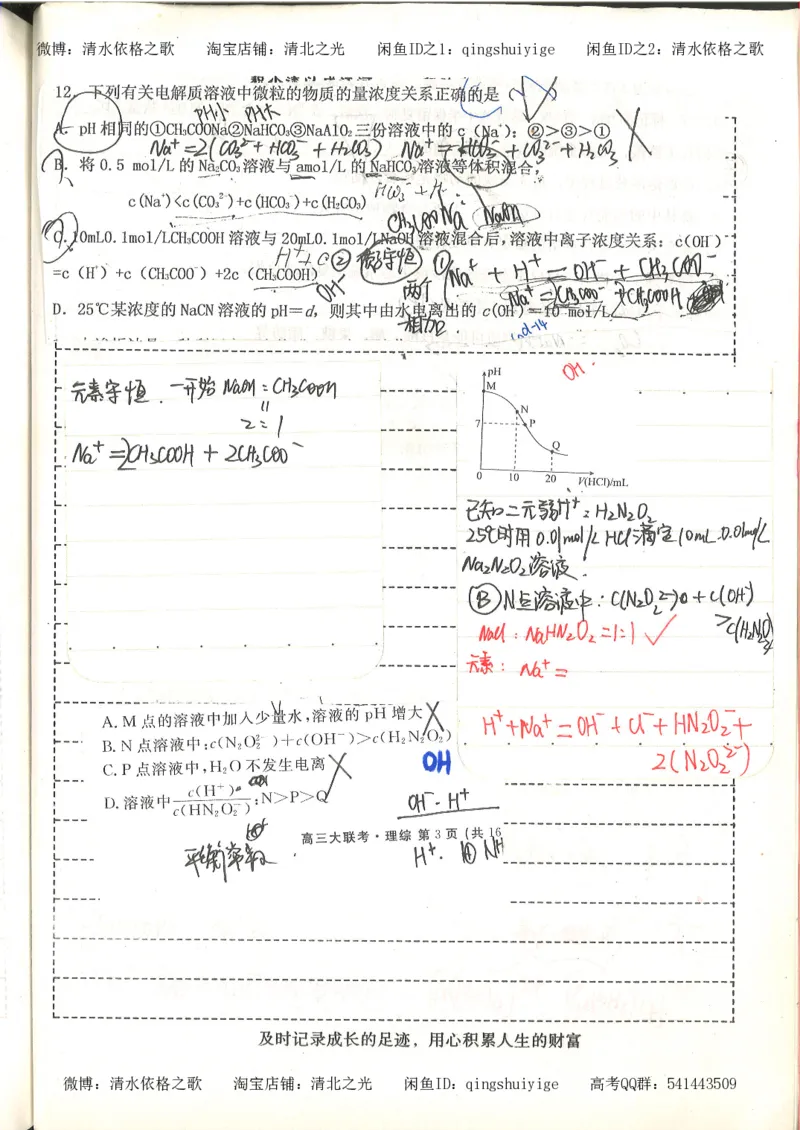 微博：清水依格之歌 淘宝店铺：清北之光 闲鱼ID之1：qingshuiyige 闲鱼ID之2：清水依格之歌
12. 下列有关电解质溶液中微粒的物质的量浓度关系正确的是（ ）
pH小 pH大
A. pH相同的①CH₃COONa②NaHCO₃③NaAlO₂三份溶液中的 c（Na⁺）：②＞③＞① X
Na⁺=2(CO₃²⁻+HCO₃⁻+H₂CO₃) Na⁺=HCO₃⁻+CO₃²⁻+H₂CO₃
B. 将 0.5 mol/L 的 Na₂CO₃溶液与 amol/L 的 NaHCO₃溶液等体积混合，
c(Na⁺)<c(CO₃²⁻)+c(HCO₃⁻)+c(H₂CO₃)
CH₃COONa NaOH
C.10mL0.1mol/LCH₃COOH 溶液与 20mL0.1mol/LNaOH 溶液混合后，溶液中离子浓度关系：c(OH⁻)
② 物守恒 ① Na⁺+H⁺=OH⁻+CH₃COO⁻
=c（H⁺）+c（CH₃COO⁻）+2c（CH₃COOH）
OH⁻ 两个
D. 25℃某浓度的 NaCN 溶液的 pH＝d，则其中由水电离出的 c(OH⁻)＝10⁻ mol/L
相加.
元素守恒. 一开始 NaOH：CH₃COOH
2：1
Na⁺=2CH₃COOH+2CH₃COO⁻
OH⁻
pH
M
N
7
P
Q
0 10 20 V(HCl)/mL
已知二元弱H⁺：H₂N₂O₂
25℃时用0.01mol/L HCl滴定10mL 0.01mol/L
Na₂N₂O₂溶液.
Ⓑ N点溶液中：C(N₂O₂²⁻)+C(OH⁻)
>C(H₂N₂O₂)
NaCl：NaHN₂O₂=1：1 ✓
元素：Na⁺=
H⁺+Na⁺=OH⁻+Cl⁻+HN₂O₂⁻+
2(N₂O₂²⁻)
A. M 点的溶液中加入少量水，溶液的 pH 增大 X
B. N 点溶液中：c(N₂O₂²⁻)＋c(OH⁻)＞c(H₂N₂O₂)
OH
C. P 点溶液中，H₂O 不发生电离 X
D. 溶液中 c(H⁺)/c(HN₂O₂⁻)：N＞P＞Q
OH⁻-H⁺
高三大联考·理综 第 3 页（共 16
平衡常数
H⁺.
及时记录成长的足迹，用心积累人生的财富
微博：清水依格之歌 淘宝店铺：清北之光 闲鱼ID：qingshuiyige 高考QQ群：541443509